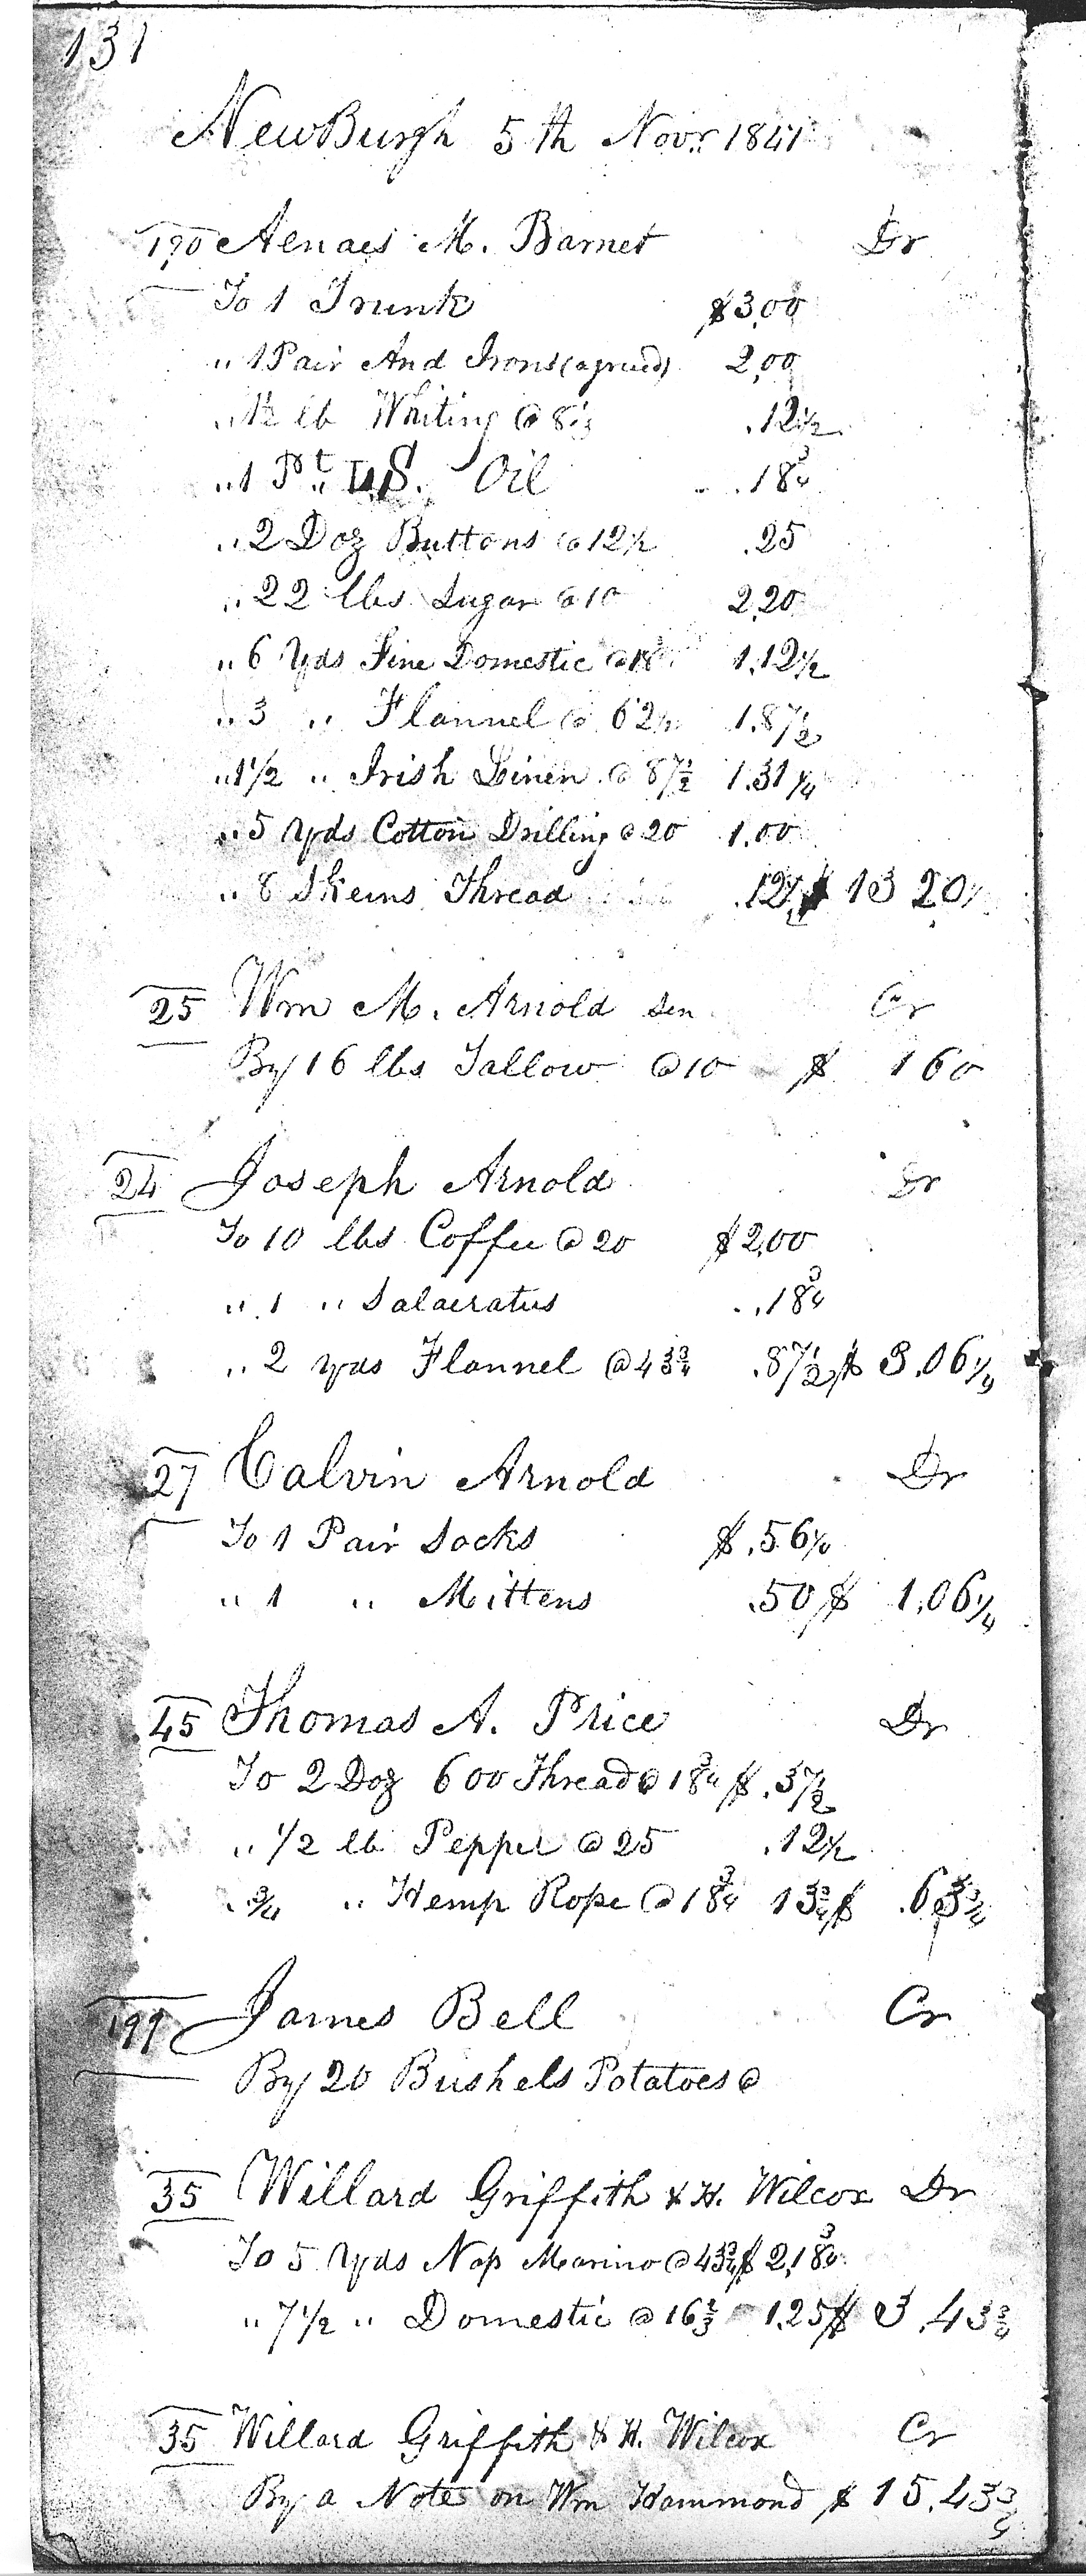 131
NewBurgh 5th Novr. 1841
190 Aenaes M. Barnet Dr
To 1 Trunk $3.00
" 1 Pair And Irons (agreed) 2.00
" 1½ lb Whiting @ 8⅓ .12½
" 1 Pt. L.S. Oil .18¾
" 2 Doz Buttons @ 12½ .25
" 22 lbs Sugar @ 10 2.20
" 6 Yds Fine Domestic @ 18¾ 1.12½
" 3 " Flannel @ 62½ 1.87½
" 1½ " Irish Linen @ 87½ 1.31¼
" 5 Yds Cotton Drilling @ 20 1.00
" 8 Skeins Thread .12½ $ 13 20
25 Wm M. Arnold Sen Cr
By 16 lbs Tallow @ 10 $ 1 60
24 Joseph Arnold Dr
To 10 lbs Coffee @ 20 $2.00
" 1 " Salaeratus .18¾
" 2 yds Flannel @ 43¾ .87½ $ 3.06¼
27 Calvin Arnold Dr
To 1 Pair Socks $.56¼
" 1 " Mittens .50 $ 1.06¼
45 Thomas A. Price Dr
To 2 Doz 600 Thread @ 18¾ $.37½
" 1/2 lb Pepper @ 25 .12½
" ¾ " Hemp Rope @ 18¾ 13¾ $ .63¾
199 James Bell Cr
By 20 Bushels Potatoes @
35 Willard Griffith & H. Wilcox Dr
To 5 Yds Nap Marino @ 43¾ $ 2.18¾
" 7½ " Domestic @ 16⅔ 1.25 $ 3.43¾
35 Willard Griffith & H. Wilcox Cr
By a Note on Wm Hammond $ 15.43¾